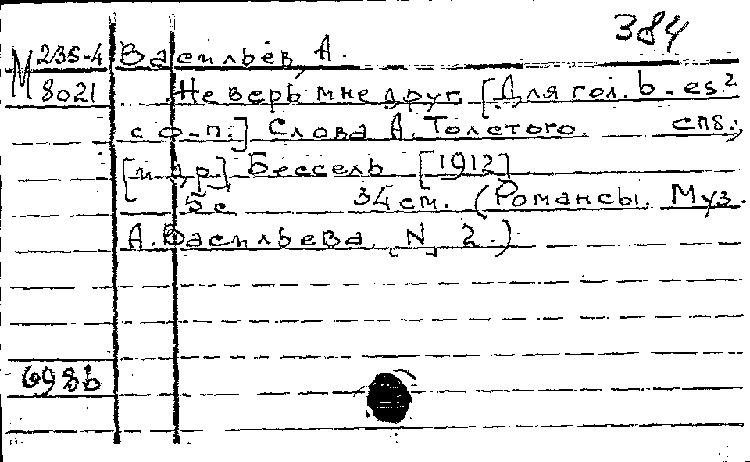 384
М 235-4 Васильев, А.
8021 Не верь мне друг. [Для гол. b - es²
с ф-п.] Слова А. Толстого. СПб.,
[и др.] Бессель [1912]
5 с 34 см. (Романсы. Муз.
А. Васильева. N 2.)
698b